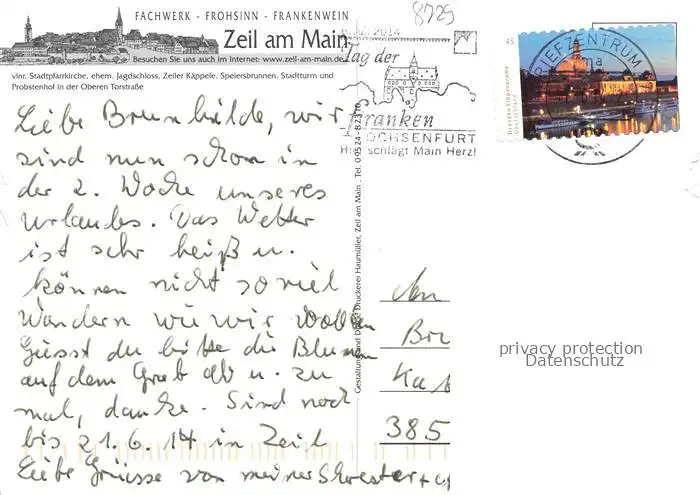 FACHWERK · FROHSINN · FRANKENWEIN
Zeil am Main
Besuchen Sie uns auch im Internet: www.zeil-am-main.de
vlnr. Stadtpfarrkirche, ehem. Jagdschloss, Zeiler Käppele, Speiersbrunnen, Stadtturm und
Probstenhof in der Oberen Torstraße
8729
2014
Tag der
Franken
OCHSENFURT
Hier schlägt Main Herz!
45
Dresden Elbpanorama
Deutschland
BRIEFZENTRUM
Liebe Brunhilde, wir
sind nun schon in
der 2. Woche unseres
Urlaubes. Das Wetter
ist sehr heiß u.
können nicht soviel
Wandern wie wir wollen
Giesst du bitte die Blumen
auf dem Grab ab u. zu
mal, danke. Sind noch
bis 21.6.14 in Zeil
Liebe Grüsse von meiner Schwester +
Gestaltung und Druck: Druckerei Haumüller, Zeil am Main, Tel. 09524-82310
An
Br
Ka
385
privacy protection
Datenschutz